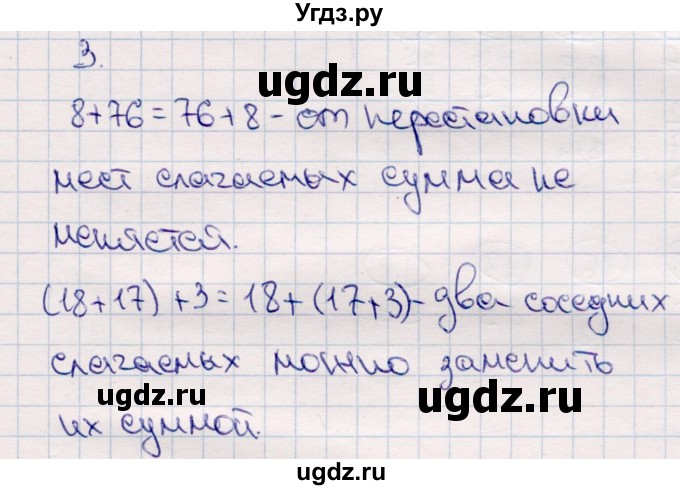 Угдз.ру
3.
ugdz.ru
8+76=76+8 - от перестановки
мест слагаемых сумма не
меняется.
(18+17)+3=18+(17+3) - два соседних
слагаемых можно заменить
ugdz.ru
ugdz.ru
их суммой.
ugdz.ru